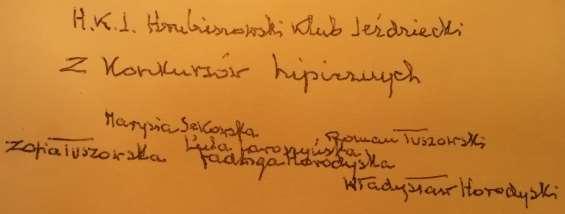 H.K.J. Hrubieszowski Klub Jeździecki
Z Konkursów hipicznych
Marysia Sękowska
Roman Tuszowski
Zofia Tuszowska
Luta Jaroszyńska
Jadwiga Horodyska
Władysław Horodyski